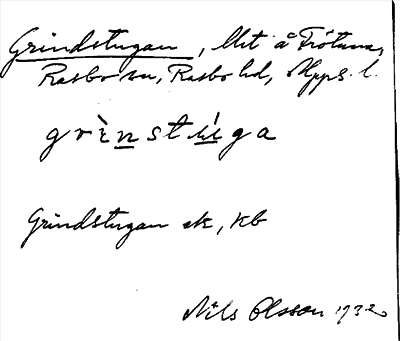 Grindstugan, lht å Frötuna,
Rasbo sn, Rasbo hd, Upps. l.
grìnstúga
Grindstugan ek, kb
Nils Olsson 1932